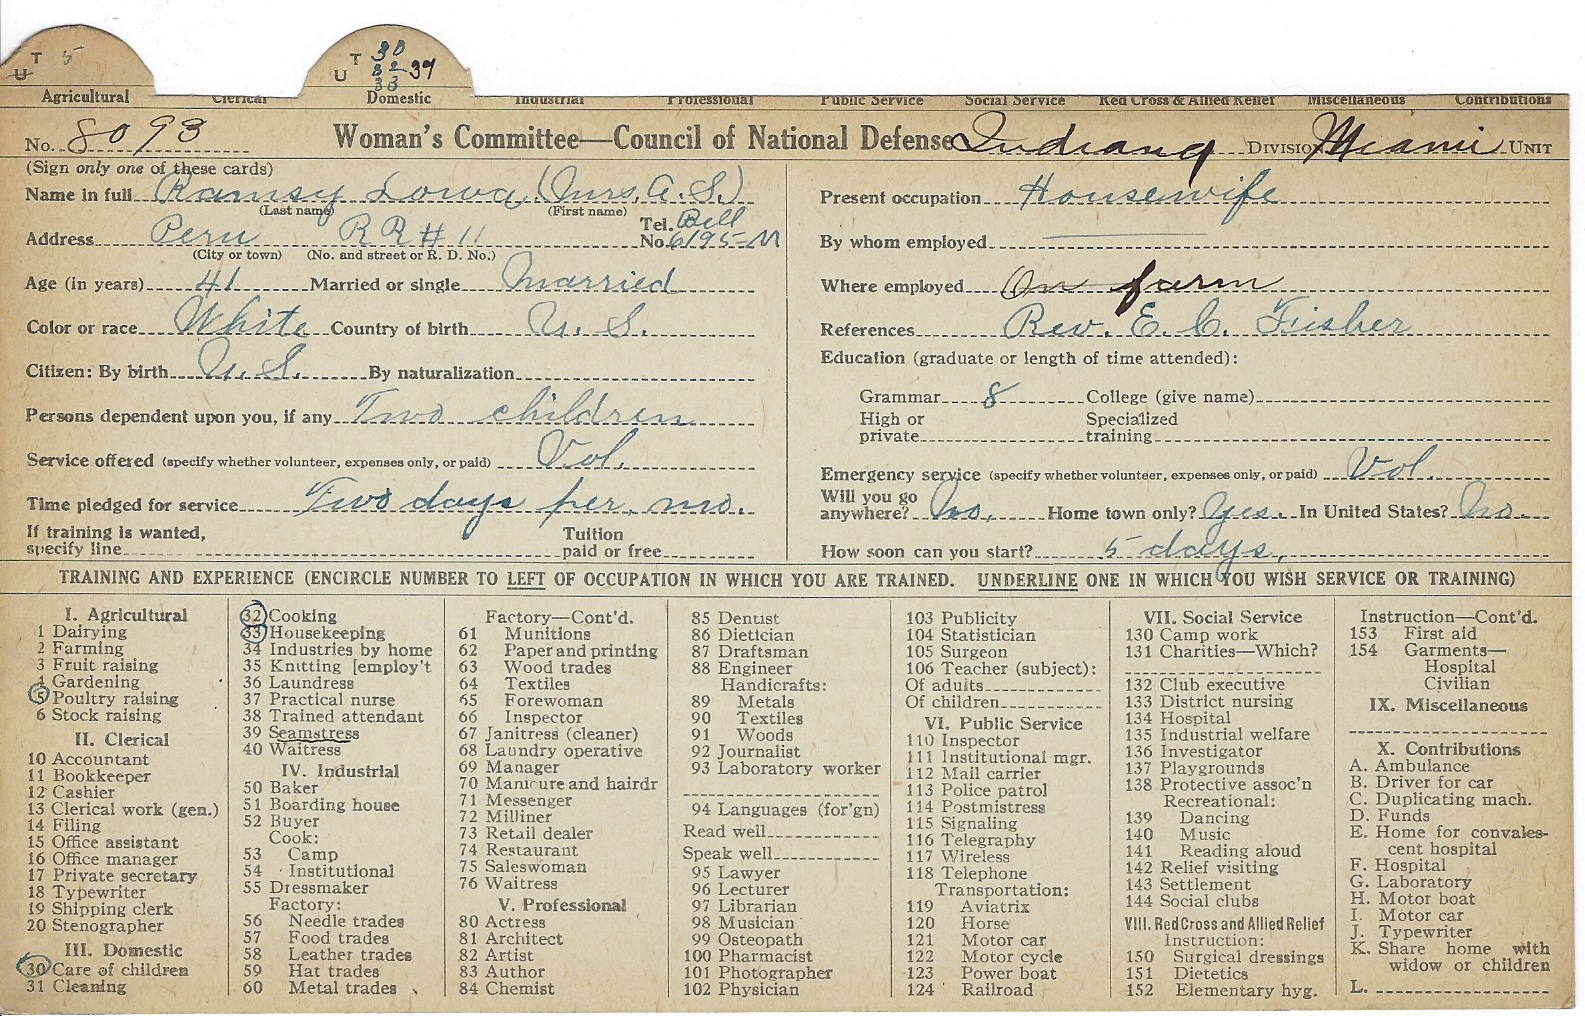 T 5
U
T 30
U 32 39
33
Agricultural Clerical Domestic Industrial Professional Public Service Social Service Red Cross & Allied Relief Miscellaneous Contributions
No. 8093 Woman's Committee—Council of National Defense Indiana DIVISION Miami UNIT
(Sign only one of these cards)
Name in full Ramsy Lowa (Mrs. A. S.)
(Last name) (First name)
Address Peru RR # 11 Tel. No. Bell 6195-M
(City or town) (No. and street or R. D. No.)
Age (in years) 41 Married or single Married
Color or race White Country of birth U. S.
Citizen: By birth U. S. By naturalization
Persons dependent upon you, if any Two children
Service offered (specify whether volunteer, expenses only, or paid) Vol.
Time pledged for service Two days per. mo.
If training is wanted, specify line Tuition paid or free
Present occupation Housewife
By whom employed
Where employed On farm
References Rev. E. C. Fisher
Education (graduate or length of time attended):
Grammar 8 College (give name)
High or private Specialized training
Emergency service (specify whether volunteer, expenses only, or paid) Vol.
Will you go anywhere? No. Home town only? Yes. In United States? No.
How soon can you start? 5 days.
TRAINING AND EXPERIENCE (ENCIRCLE NUMBER TO LEFT OF OCCUPATION IN WHICH YOU ARE TRAINED. UNDERLINE ONE IN WHICH YOU WISH SERVICE OR TRAINING)
I. Agricultural
1 Dairying
2 Farming
3 Fruit raising
4 Gardening
5 Poultry raising
6 Stock raising
II. Clerical
10 Accountant
11 Bookkeeper
12 Cashier
13 Clerical work (gen.)
14 Filing
15 Office assistant
16 Office manager
17 Private secretary
18 Typewriter
19 Shipping clerk
20 Stenographer
III. Domestic
30 Care of children
31 Cleaning
32 Cooking
33 Housekeeping
34 Industries by home
35 Knitting [employ't
36 Laundress
37 Practical nurse
38 Trained attendant
39 Seamstress
40 Waitress
IV. Industrial
50 Baker
51 Boarding house
52 Buyer
Cook:
53 Camp
54 Institutional
55 Dressmaker
Factory:
56 Needle trades
57 Food trades
58 Leather trades
59 Hat trades
60 Metal trades
Factory—Cont'd.
61 Munitions
62 Paper and printing
63 Wood trades
64 Textiles
65 Forewoman
66 Inspector
67 Janitress (cleaner)
68 Laundry operative
69 Manager
70 Manicure and hairdr
71 Messenger
72 Milliner
73 Retail dealer
74 Restaurant
75 Saleswoman
76 Waitress
V. Professional
80 Actress
81 Architect
82 Artist
83 Author
84 Chemist
85 Dentist
86 Dietician
87 Draftsman
88 Engineer
Handicrafts:
89 Metals
90 Textiles
91 Woods
92 Journalist
93 Laboratory worker
94 Languages (for'gn)
Read well
Speak well
95 Lawyer
96 Lecturer
97 Librarian
98 Musician
99 Osteopath
100 Pharmacist
101 Photographer
102 Physician
103 Publicity
104 Statistician
105 Surgeon
106 Teacher (subject):
Of adults
Of children
VI. Public Service
110 Inspector
111 Institutional mgr.
112 Mail carrier
113 Police patrol
114 Postmistress
115 Signaling
116 Telegraphy
117 Wireless
118 Telephone
Transportation:
119 Aviatrix
120 Horse
121 Motor car
122 Motor cycle
123 Power boat
124 Railroad
VII. Social Service
130 Camp work
131 Charities—Which?
132 Club executive
133 District nursing
134 Hospital
135 Industrial welfare
136 Investigator
137 Playgrounds
138 Protective assoc'n
Recreational:
139 Dancing
140 Music
141 Reading aloud
142 Relief visiting
143 Settlement
144 Social clubs
VIII. Red Cross and Allied Relief
Instruction:
150 Surgical dressings
151 Dietetics
152 Elementary hyg.
Instruction—Cont'd.
153 First aid
154 Garments—
Hospital
Civilian
IX. Miscellaneous
X. Contributions
A. Ambulance
B. Driver for car
C. Duplicating mach.
D. Funds
E. Home for convales-
cent hospital
F. Hospital
G. Laboratory
H. Motor boat
I. Motor car
J. Typewriter
K. Share home with
widow or children
L.